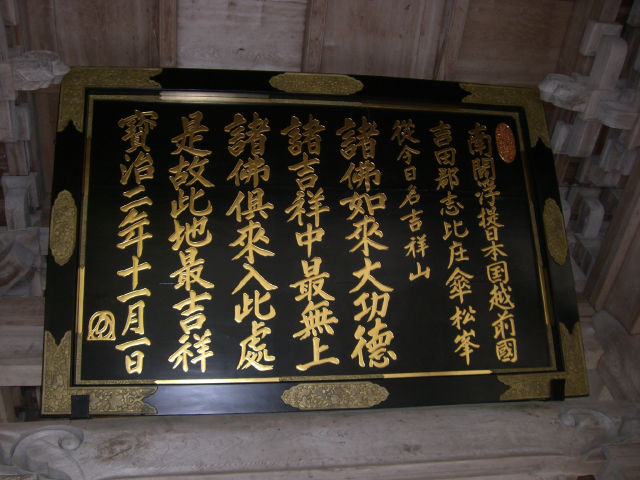 南閻浮提日本国越前國
吉田郡志比庄傘松峯
從今日名吉祥山
諸佛如來大功徳
諸吉祥中最無上
諸佛倶來入此處
是故此地最吉祥
寶治二年十一月一日